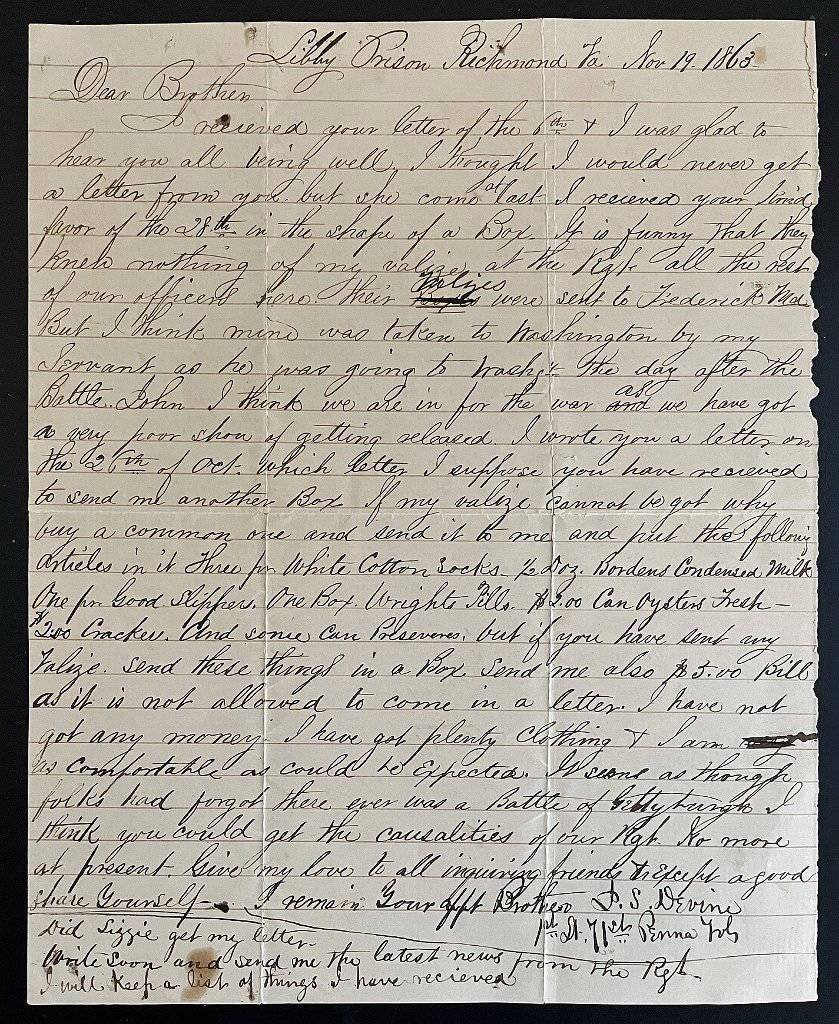 Libby Prison Richmond Va. Nov 19. 1863
Dear Brother
I recieved your letter of the 6th & I was glad to
hear you all being well, I thought I would never get
a letter from you. but she come at last I recieved your kind
favor of the 28th in the shape of a Box. It is funny that they
knew nothing of my valize at the Rgt. all the rest
of our officers here. their Valizes were sent to Frederick Md
But I think mine was taken to Washington by my
Servant as he was going to Washgt. the day after the
Battle. John I think we are in for the war as we have got
a very poor show of getting released. I wrote you a letter on
the 26th of Oct. which letter I suppose you have recieved
to send me another Box If my valize cannot be got why
buy a common one and send it to me and put the following
articles in it Three pr White Cotton Socks. ½ Doz. Bordens Condensed Milk
One pr Good Slippers. One Box. Wrights Pills. $2.00 Can Oysters Fresh —
$2.00 Cracker. And some Can Preserves, but if you have sent my
Valize. send these things in a Box send me also $5.00 Bill
as it is not allowed to come in a letter. I have not
got any money. I have got plenty Clothing & I am
as comfortable as could be Expected. It seems as though
folks had forgot there ever was a Battle of Gettyburgh I
think you could get the causalities of our Rgt. No more
at present. Give my love to all inquiring friends & Except a good
share Yourself — I remain Your afft Brother D. S. Devine
1st Lt. 71st Penna Vols
Did Lizzie get my letter
Write soon and send me the latest news from the Rgt.
I will keep a list of things I have recieved